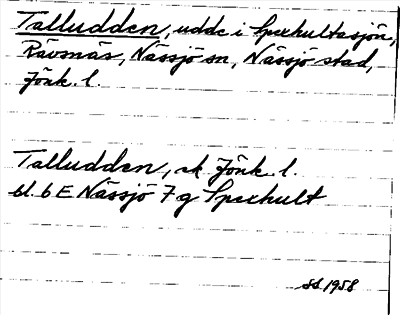 Talludden, udde i Spexhultasjön,
Rävsnäs, Nässjö sn, Nässjö stad,
Jönk. l.
Talludden, ek Jönk. l.
bl. 6 E Nässjö 7 g Spexhult
SS 1958